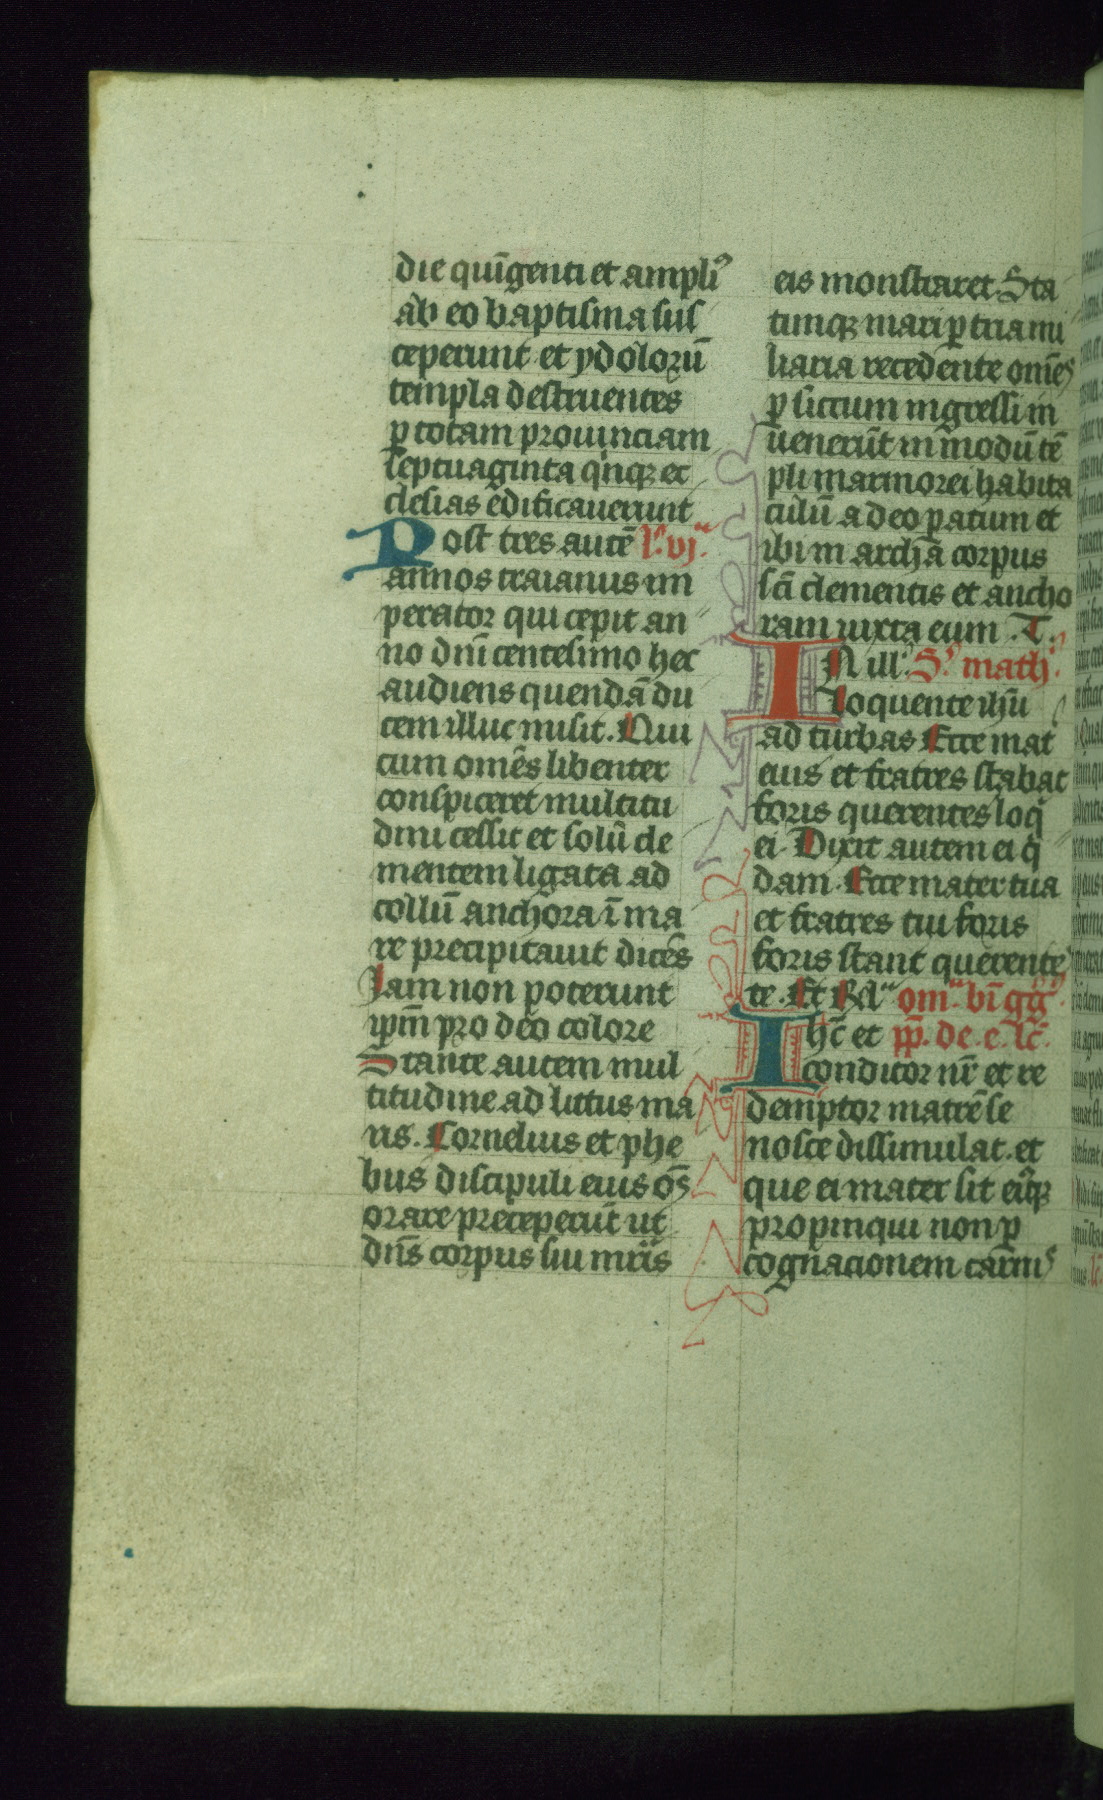 die qui̅genti et ampliꝰ
ab eo baptisma sus
ceperunt et ydoloru̅
templa destruentes
ꝑ totam prouinciam
septuaginta qinqꝫ ec
clesias edificauerunt
Post tres aute̅ l. vj.
annos traianus im
perator qui cepit an
no dn̅i centesimo hec
audiens quenda̅ du
cem illuc misit. Qui
cum ome̅s libenter
conspiceret multitu
dini cessit et solu̅ cle
mentem ligata ad
collu̅ anchora i̅ ma
re precipitauit dice̅s
Iam non poterunt
ip̅m pro deo colore
Stante autem mul
titudine ad littus ma
ris. Cornelius et phe
bus discipuli eius om̅s
orare preceperu̅t ut
dn̅s corpus sui mr̅is
eis monstraret Sta
timqꝫ mari ꝑ tria mi
liaria recedente om̅es
ꝑ siccum ingressi in
ueneru̅t in modu̅ te̅
pli marmorei habita
culu̅ a deo ꝑatum et
ibi in archa̅ corpus
sc̅i clementis et ancho
ram iuxta eum .T.
IN ill. Sꝰ math.
Loquente ih̅u
ad turbas Ecce mat
eius et fratres stabat
foris querentes loq
ei. Dixit autem ei q
dam. Ecce mater tua
et fratres tui foris
foris stant querente
te. Et Rel. om. bi̅ gg.
Ih̅c et pp̅. de. e. lc̅.
conditor nr̅ et re
demptor matre̅ se
nosce dissimulat. et
que ei mater sit eiqꝫ
propinqui non ꝑ
cognacionem carnis